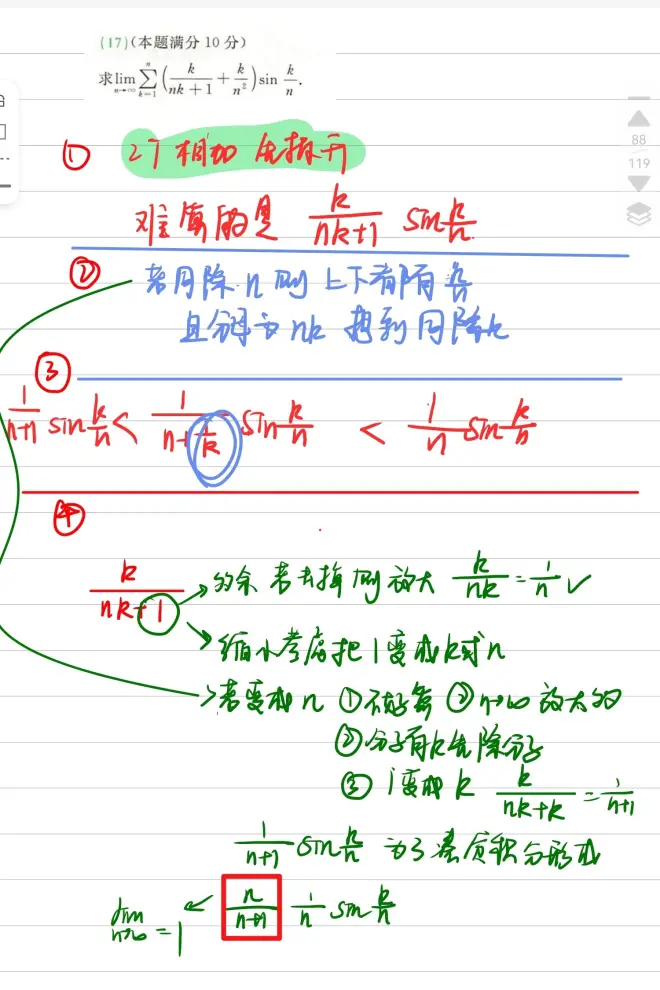 (17)(本题满分 10 分)
求 lim_{n→∞} ∑_{k=1}^{n} (k/(nk+1) + k/n²) sin k/n.
88
119
① 2个相加 先拆开
难算的是 k/(nk+1) sin k/n
② 若同除 n 则上下都有 k/n
且分母为 nk 想到同除k
③
1/(n+1) sin k/n < 1/(n+1/k) sin k/n < 1/n sin k/n
④
k/(nk+1) → 多余 若去掉则放大 k/nk = 1/n ✓
→ 缩小考虑把1变成k或n
→ 若变成 n ① 不好算 ② n→∞ 放大的
② 分子有k先除分子
③ 1变成 k k/(nk+k) = 1/(n+1)
1/(n+1) sin k/n 为了凑定积分形式
lim_{n→∞} = 1 ← n/(n+1) 1/n sin k/n